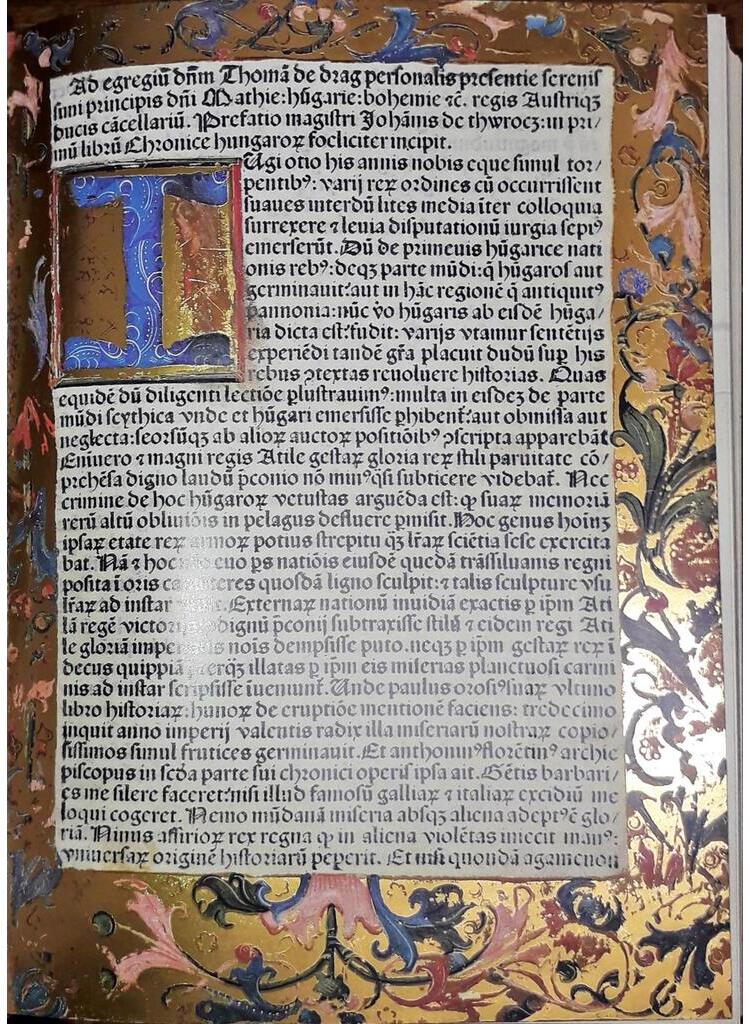 Ad egregiū dn̄m Thomā de drag personalis presentie serenis
simi principis dn̄i Mathie: hūgarie: bohemie ⁊c̄. regis Austriqꝫ
ducis cācellariū. Prefatio magistri Johānis de thwrocz: in pri/
mū libru Chronice hungaroꝝ foeliciter incipit.
IUgi otio his annis nobis eque simul tor/
pentibꝰ: varij reꝝ ordines cū occurrissent
suaues interdū lites media īter colloquia
surrexere ⁊ leuia disputationū iurgia sepiꝰ
emerserūt. Dū de primeuis hūgarice nati
onis rebꝰ: deqꝫ parte mūdi: q̄ hūgaros aut
germinauit: aut in hāc regionē q̄ antiquitꝰ
pannonia: nūc v̄o hūgaris ab eisdē hūga/
ria dicta est: fudit: varijs vtamur sentētijs
experiēdi tandē gr̄a placuit dudū suꝑ his
rebus ꝯtextas reuoluere historias. Quas
equidē dū diligenti lectiōe ꝑlustrauimꝰ: multa in eisdeꝫ de parte
mūdi scythica vnde et hūgari emersisse ꝑhibent̄: aut obmissa aut
neglecta: seorsūqꝫ ab alioꝝ auctoꝝ positiōibꝰ ꝯscripta apparebāt
Enuero ⁊ magni regis Atile gestaꝝ gloria reꝝ stili paruitate cō/
p̄hēsa digno laudū p̄conio nō minꝰ q̄si subticere videbat̄. Nec
crimine de hoc hūgaroꝝ vetustas arguēda est: ꝙ suaꝝ memoriā
rerū altū obliuiōis in pelagus defluere ꝑmisit. Hoc genus hoīnꝫ
ipsaꝝ etate reꝝ armoꝝ potius strepitu qꝫ̄ lr̄aꝝ sciētia sese exercita
bat. Nā ⁊ hoc euo ꝑs natiōis eiusdē quedā trāssiluanis regni
posita ī oris quosdā ligno sculpit: ⁊ talis sculpture vsu
lr̄aꝝ ad instar Externaꝝ nationū inuidiā exactis ꝑ ip̄m Ati
lā regē dignū p̄conij subtraxisse stilū ⁊ eidem regi Ati
le gloriā noīs dempsisse puto. neqꝫ ꝑ ip̄m gestaꝝ reꝝ ī
decus quippiā illatas ꝑ ip̄m eis miserias planctuosi carmi
nis ad instar scripsisse īueniunt̄. Unde paulus orosiꝰ suaꝝ vltimo
libro historiaꝝ: hunoꝝ de eruptiōe mentionē faciens: tredecimo
inquit anno imperij valentis radix illa miseriarū nostraꝝ copio/
sissimos simul frutices germinauit. Et anthoninꝰ florētinꝰ archie
piscopus in scd̄a parte sui chronici operis ipsa ait. Gētis barbari/
es me silere faceret: nisi illud famosū galliaꝝ ⁊ italiaꝝ excidiū me
loqui cogeret. Nemo mūdanā miseria absqꝫ aliena adeptꝰ ē glo/
riā. Ninus assirioꝝ rex regna ꝙ in aliena violētas iniecit manꝰ:
vniuersaꝝ originē historiarū peperit. Et nisi quondā agamenon